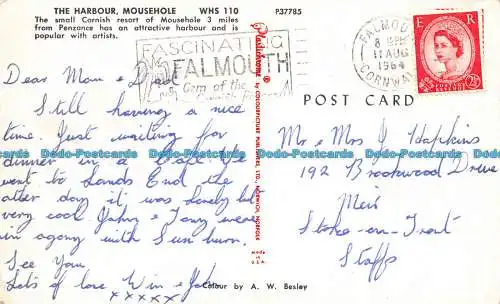 THE HARBOUR, MOUSEHOLE WHS 110
The small Cornish resort of Mousehole 3 miles
from Penzance has an attractive harbour and is
popular with artists.
P37785
FASCINATING
FALMOUTH
Gem of the
FALMOUTH
8 15PM
11 AUG
1964
CORNWALL
E R
POSTAGE REVENUE
2½D
Plastichrome ®
by COLOURPICTURE PUBLISHERS
MADE IN U.S.A.
POST CARD
Dear Mam & Dad
Still having a nice
time. Just waiting for
dinner in a We
went to Lands End the
other day it was lovely but
very cool. John & Tony were
in agony with Sun burn.
See You
Lots of love Win & John
xxxxx
Mr & Mrs J Hopkins
192 Brookwood Drive
Meir
Stoke-on-Trent
Staffs
Colour by A. W. Besley
Dodo-Postcards Dodo-Postcards Dodo-Postcards Dodo-Postcards